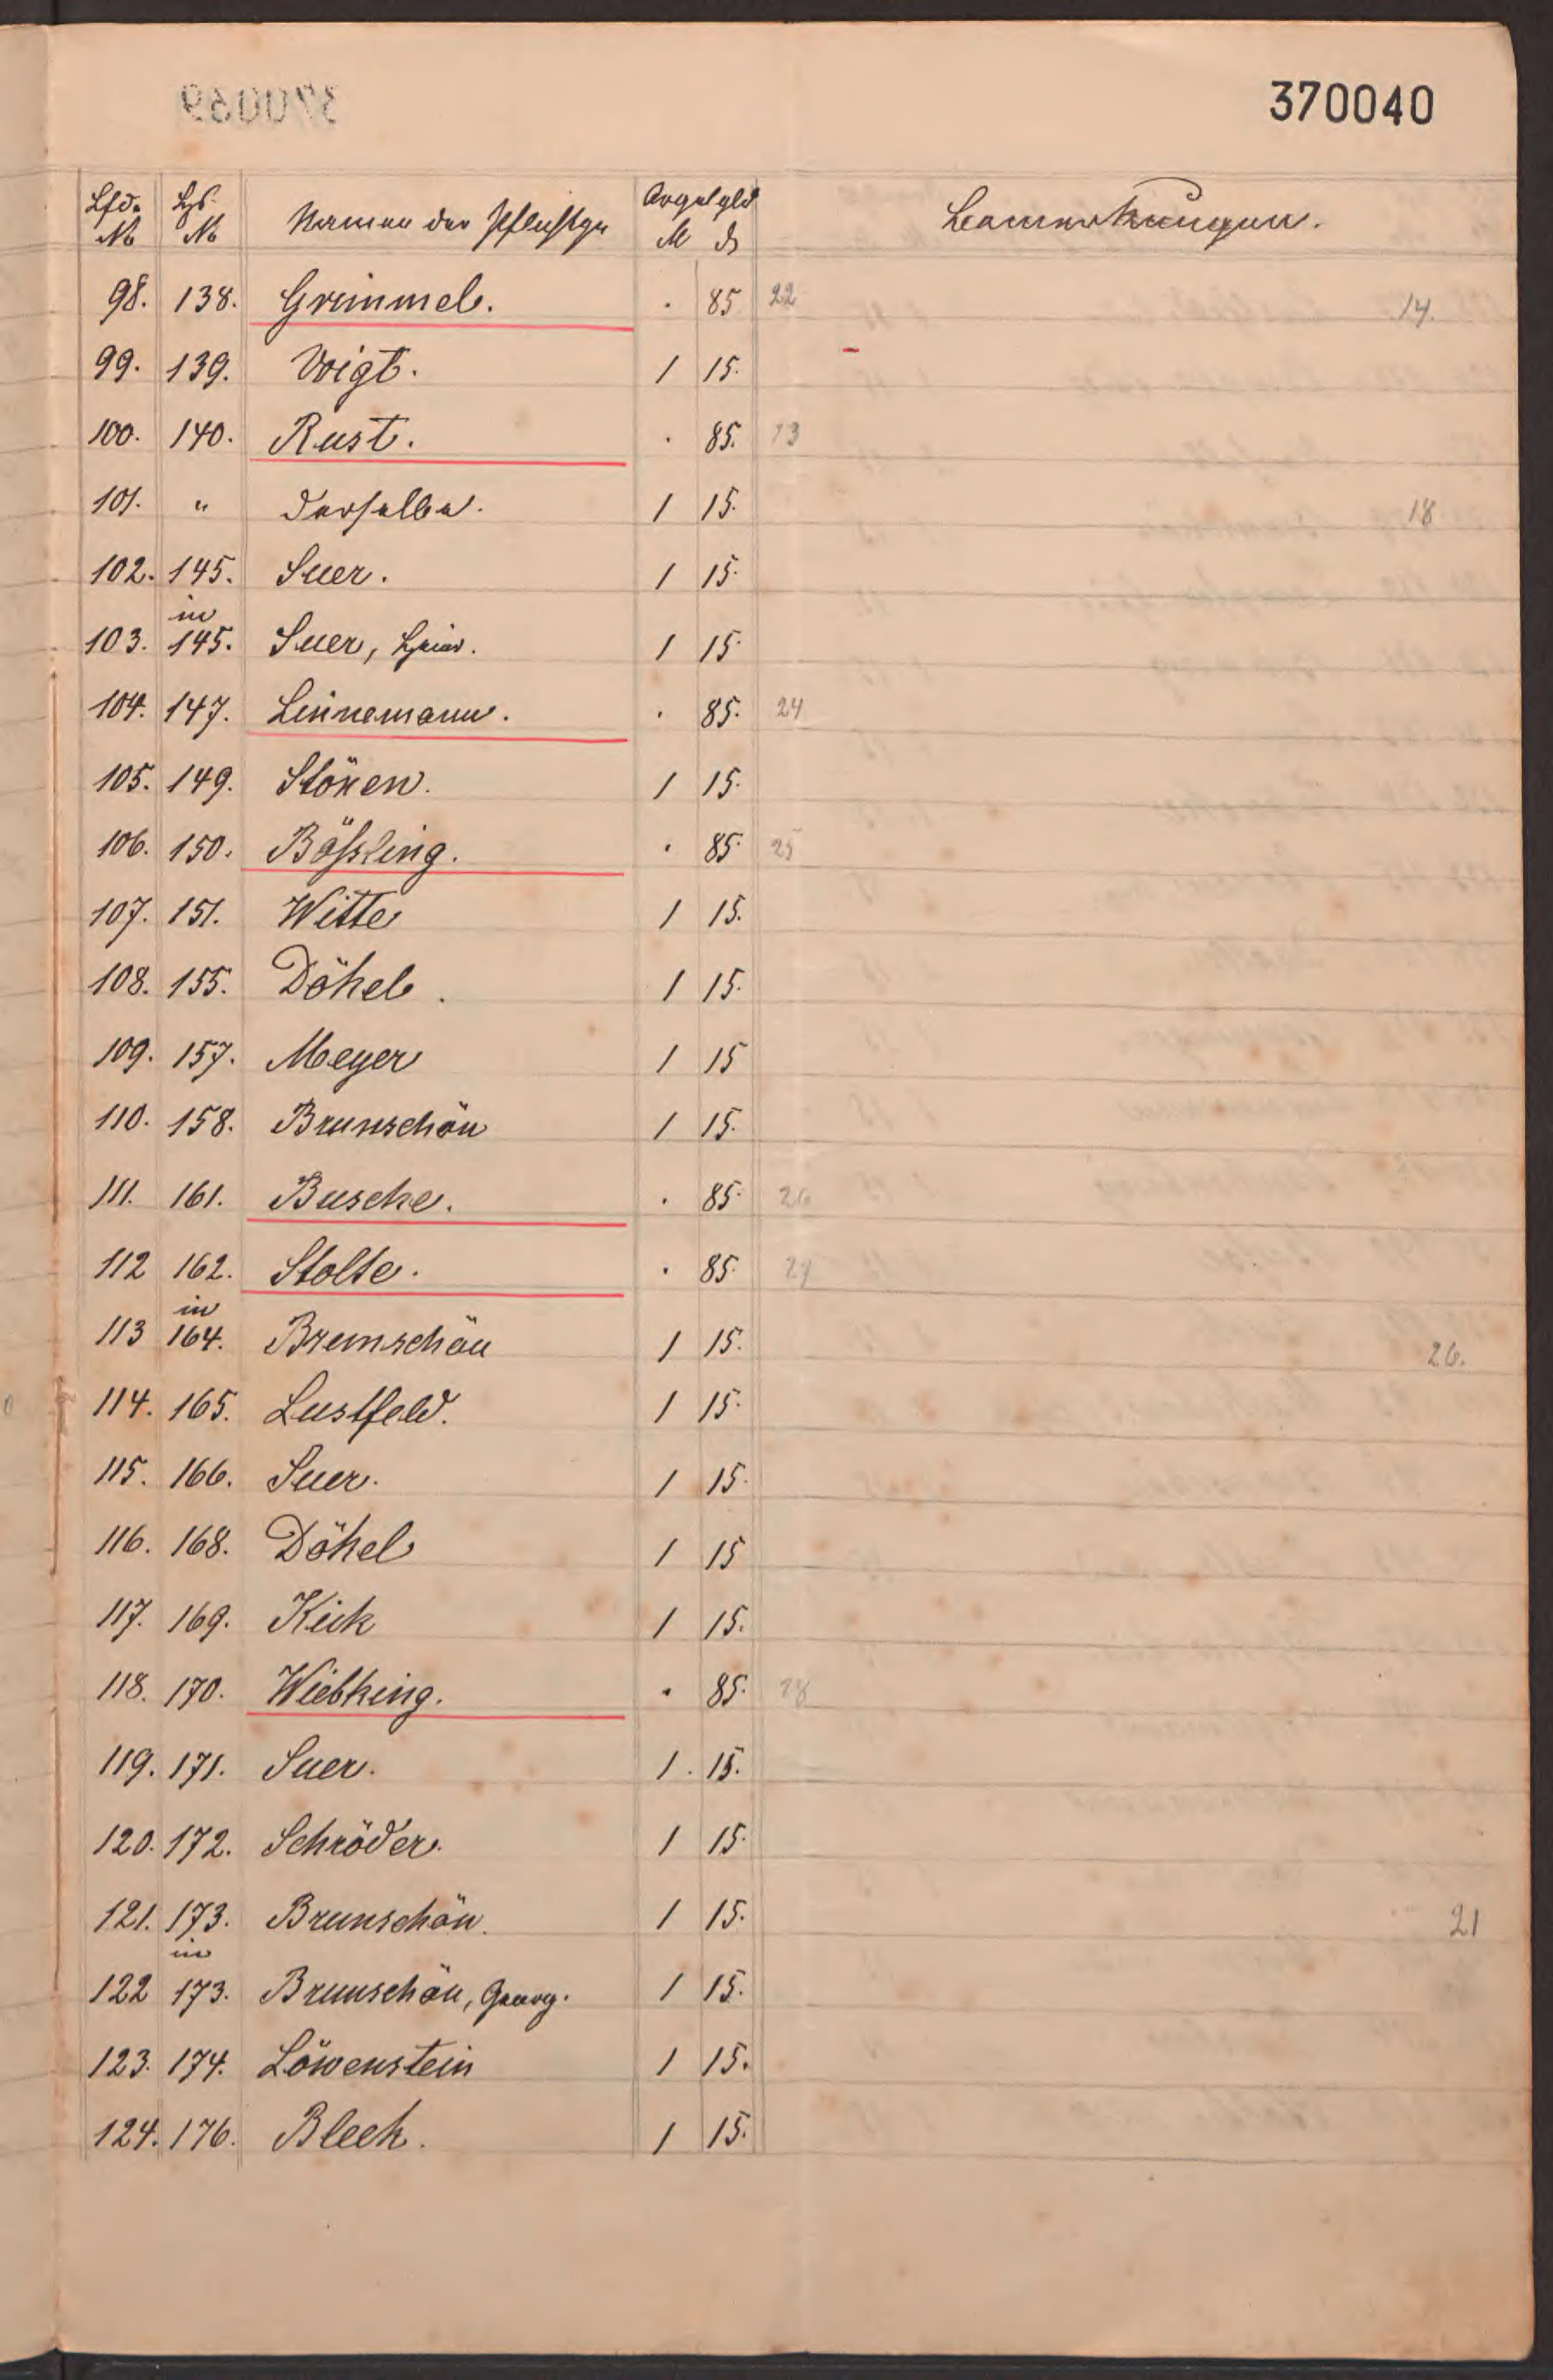 370040
Lfd. Hs. Namen der Pflichtgn Orgelgld Bemerkungen.
No No M ₰
98. 138. Grimmel. . 85 22 14.
99. 139. Voigt. 1 15.
100. 140. Rust. . 85. 23
101. " Derselbe. 1 15. 18
102. 145. Suer. 1 15.
in
103. 145. Suer, Heinr. 1 15.
104. 147. Linnemann. . 85. 24
105. 149. Stöxen. 1 15.
106. 150. Bößling. . 85. 25
107. 151. Witte 1 15.
108. 155. Döhel. 1 15.
109. 157. Meyer 1 15
110. 158. Brunschön 1 15.
111. 161. Busche. . 85. 26
112 162. Stolte. . 85. 27
in
113 164. Brunschön 1 15. 26.
114. 165. Lustfeld. 1 15.
115. 166. Suer. 1 15.
116. 168. Döhel 1 15
117. 169. Kück 1 15.
118. 170. Wiebking. . 85. 28
119. 171. Suer. 1. 15.
120. 172. Schröder. 1 15.
121. 173. Brunschön. 1 15. 21
in
122 173. Brunschön, Georg. 1 15.
123. 174. Löwenstein 1 15.
124. 176. Bleek. 1 15.